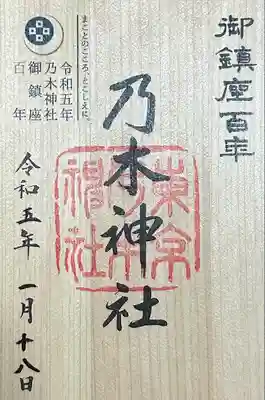 御鎮座百年
まことのこころ、とこしえに。
令和五年
乃木神社
御鎮座
百年
乃木神社
東京
乃木
神社
令和五年 一月十八日